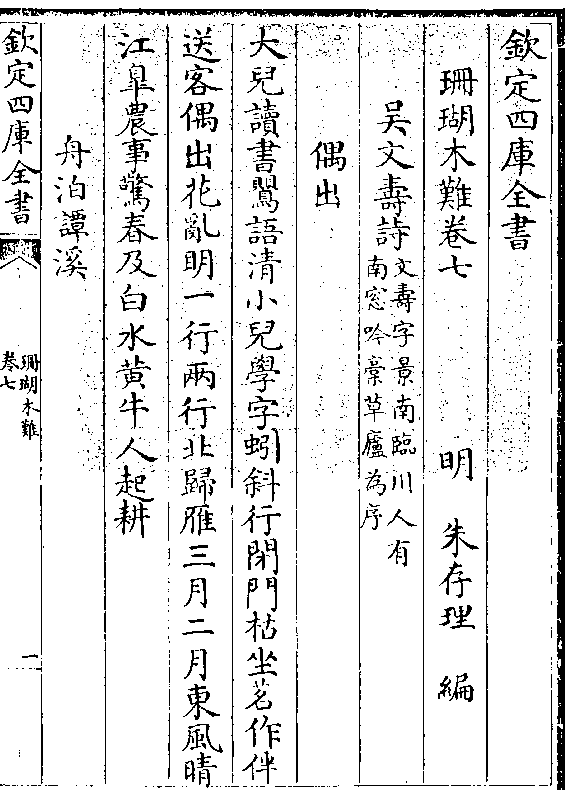 欽定四庫全書
珊瑚木難卷七
明 朱存理 編
吳文壽詩
文壽字景南臨川人有
南窓吟藁草廬為序
偶出
大兒讀書鸎語清小兒學字蚓斜行閉門枯坐茗作伴
送客偶出花亂明一行兩行北歸雁三月二月東風晴
江臯農事驚春及白水黄牛人起耕
舟泊譚溪
欽定四庫全書
珊瑚木難
卷七
一